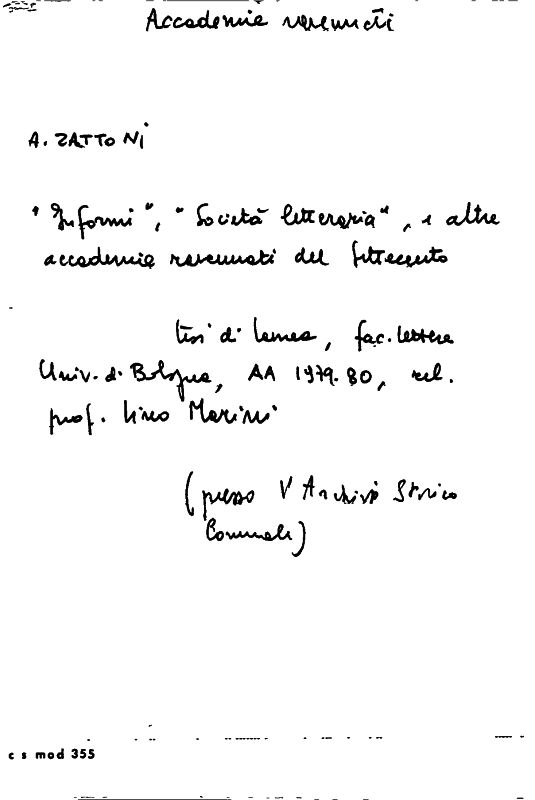 Accademie ravennati
A. ZATTONI
"Informi", "Società letteraria", e altre
accademie ravennati del settecento
tesi di laurea, fac. lettere
Univ. di Bologna, AA 1979-80, rel.
prof. Lino Marini
(presso l'Archivio Storico
Comunale)
c s mod 355